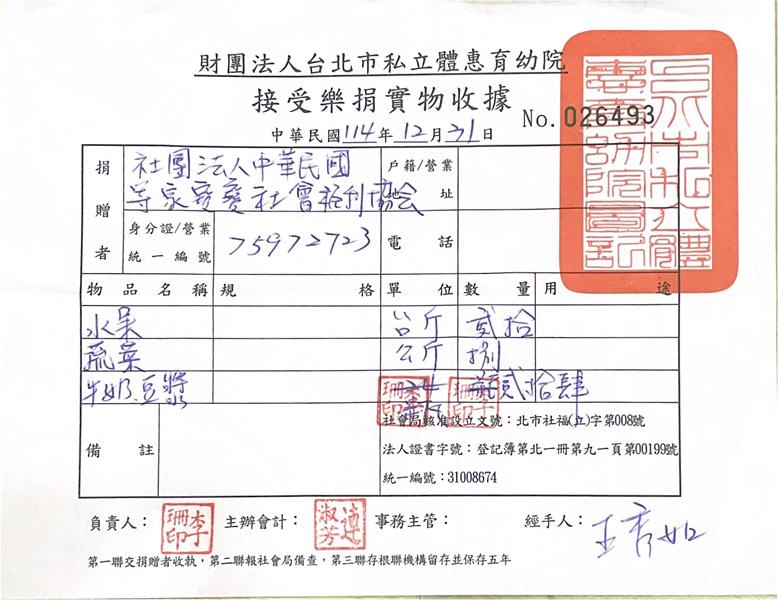 財團法人台北市私立體惠育幼院
接受樂捐實物收據
No. 026493
中華民國114年12月31日
捐贈者
社團法人中華民國
等家寶寶社會福利協會
戶籍/營業地址
身分證/營業統一編號
75972723
電話
物品名稱 規格 單位 數量 用途
水果 台斤 貳拾
蔬菜 公斤 捌
牛奶.豆漿 貳拾肆
備註
社會局核准設立文號：北市社福(立)字第008號
法人證書字號：登記簿第北一冊第九一頁第00199號
統一編號：31008674
負責人： 李珊印 主辦會計： 連淑芳 事務主管： 經手人： 王秀如
第一聯交捐贈者收執，第二聯報社會局備查，第三聯存根聯機構留存並保存五年